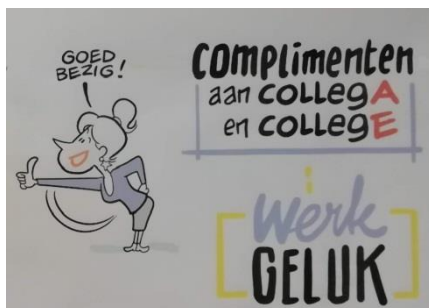 GOED
BEZIG!
complimenten
aan collegA
en collegE
werk
GELUK